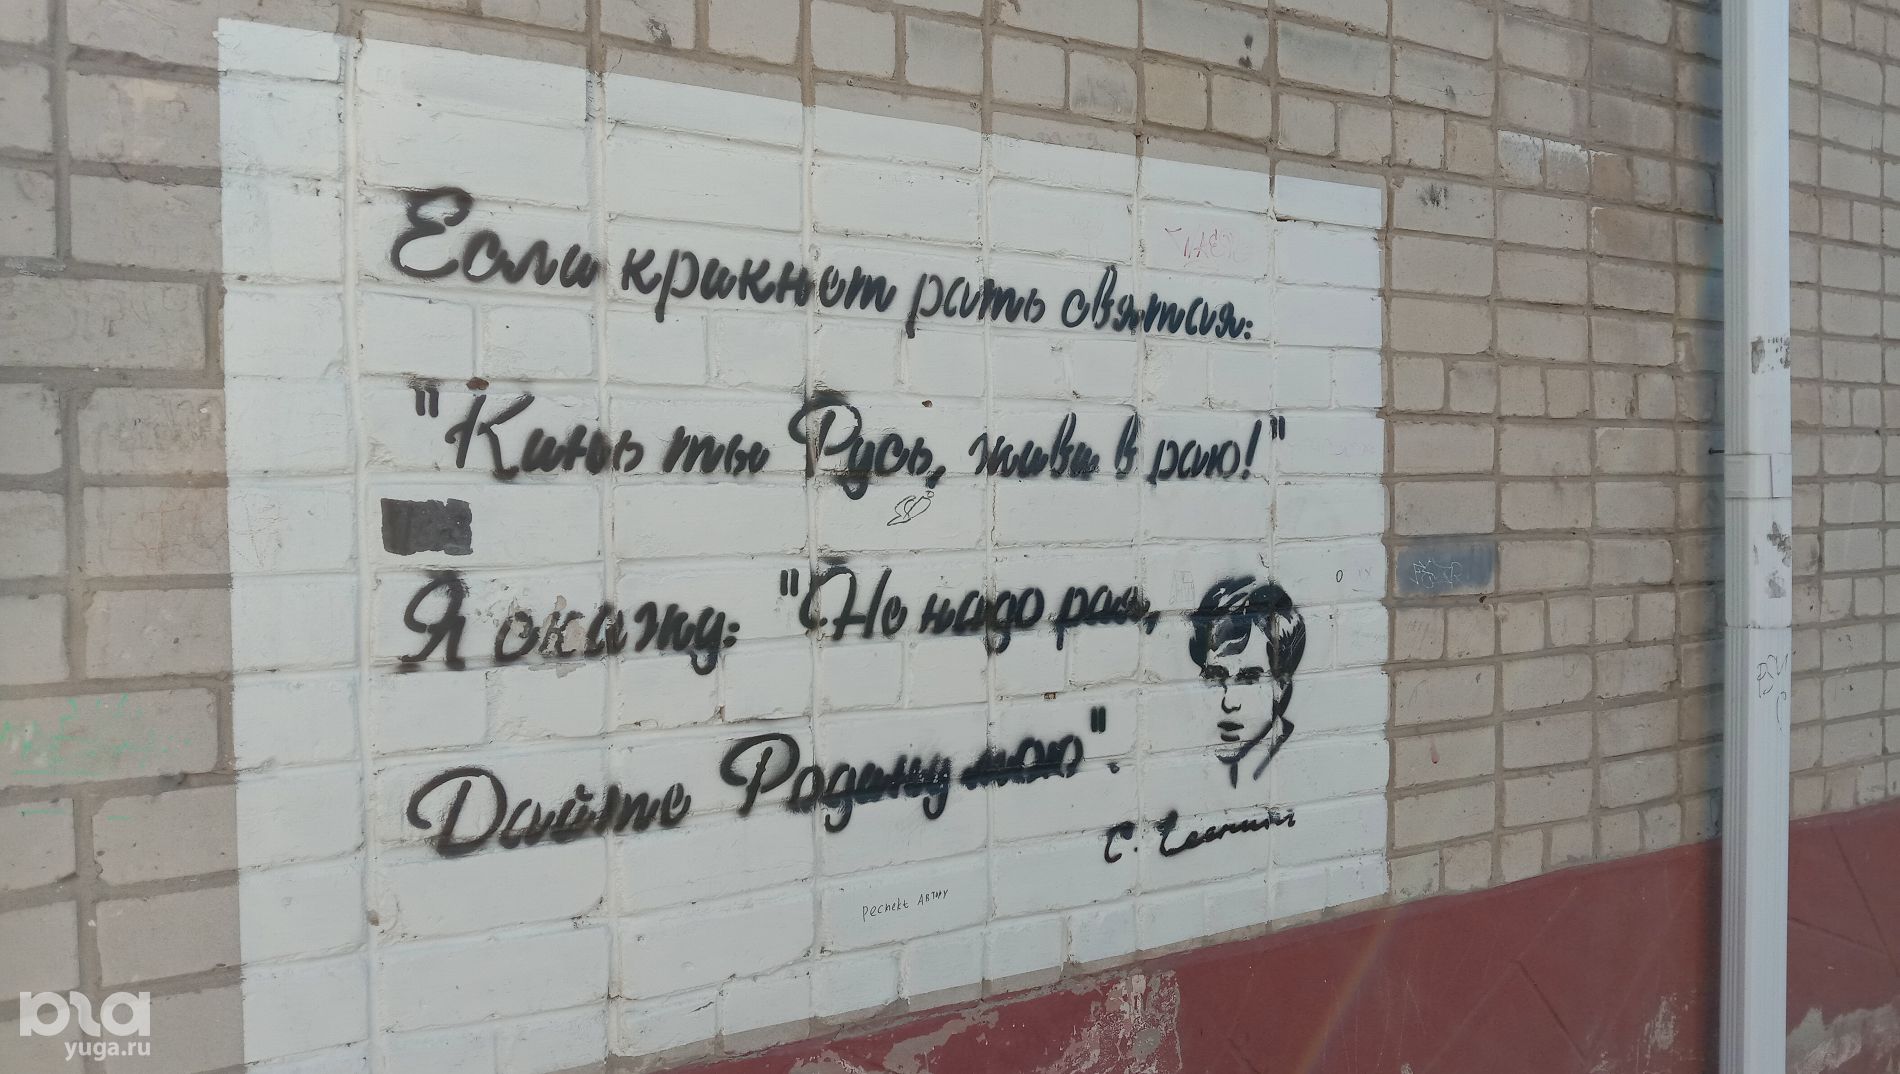 Если крикнет рать святая:
"Кинь ты Русь, живи в раю!"
Я скажу: "Не надо рая,
Дайте Родину мою".
С. Есенин
респект автору
yuga.ru